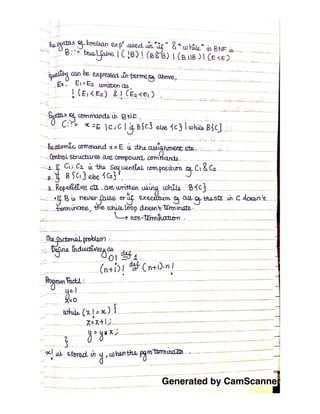 The syntax of boolean exp² used in "if" & "while" in BNF is
B ::= true | false | (!B) | (B&B) | (B||B) | (E<E)
Equality can be expressed in terms of above,
Ex. E₁=E₂ written as
! (E₁<E₂) & ! (E₂<E₁)
Syntax of commands in BNF.
C ::= x=E | C;C | if B{C} else {C} | while B{C}
The atomic command x=E is the assignment stt.
Control structures are compound commands.
1. C₁; C₂ is the sequential composition of C₁ & C₂
2. if B {C₁} else {C₂}
3. Repetitive stt. are written using while B{C}
If B is never false or if execution of all of the stts in C doesn't
terminate, the while loop doesn't terminate
non-termination.
The factorial problem
Define inductively as
0! def= 1
(n+1)! def= (n+1).n!
Program Fact1:
y=1
z=0
while (z != x) {
z=z+1;
y = y*z;
}
x! is stored in y, when the pgm terminates
Generated by CamScanner